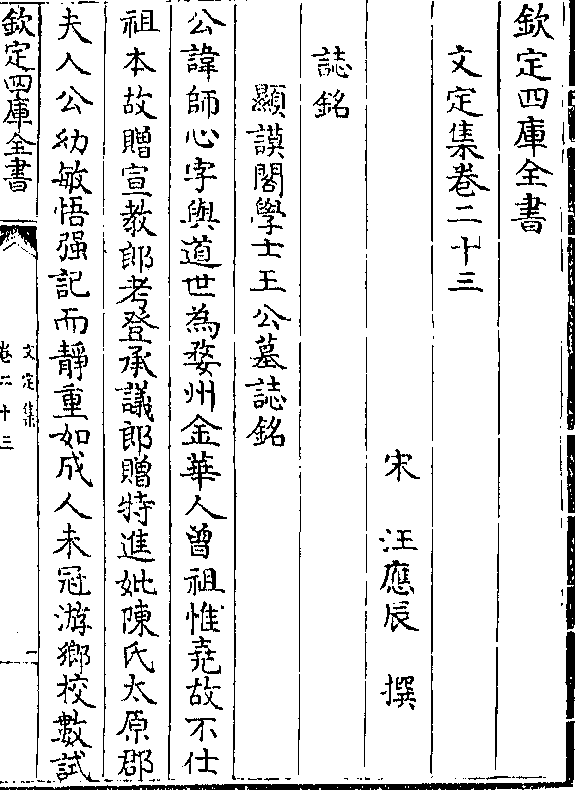 欽定四庫全書
文定集卷二十三
宋　汪應辰　撰
誌銘
顯謨閣學士王公墓誌銘
公諱師心字與道世為婺州金華人曾祖惟堯故不仕
祖本故贈宣教郎考登承議郎贈特進妣陳氏太原郡
夫人公幼敏悟强記而靜重如成人未冠游鄉校數試
欽定四庫全書
文定集
卷二十三
一